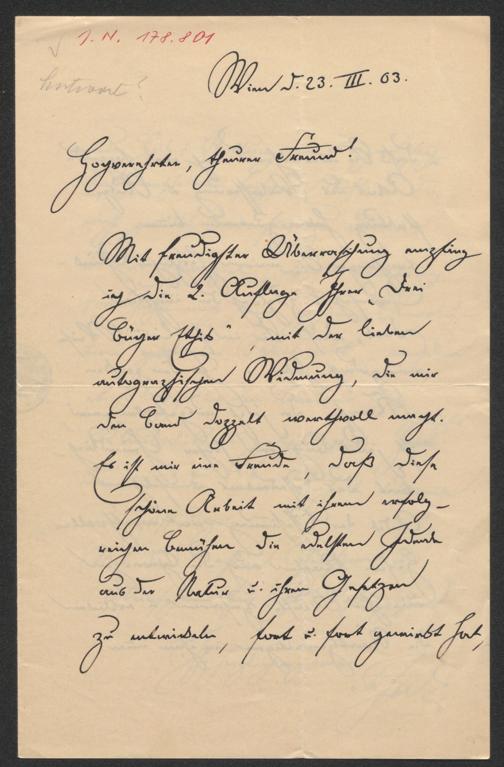 J. N. 178.801
Antwort?
Wien d. 23. III. 03.
Hochverehrter, theurer Freund!
Mit freudigster Überraschung empfing
ich die 2. Auflage Ihrer „Drei
Bücher Ethik“, mit der lieben
autographischen Widmung, die mir
den Band doppelt werthvoll macht.
Es ist mir eine Freude, daß diese
schöne Arbeit mit ihrem erfolg-
reichen Bemühen die edelsten
aus der Natur u. ihren Gesetzen
zu entwickeln, fort u. fort gewirkt hat,